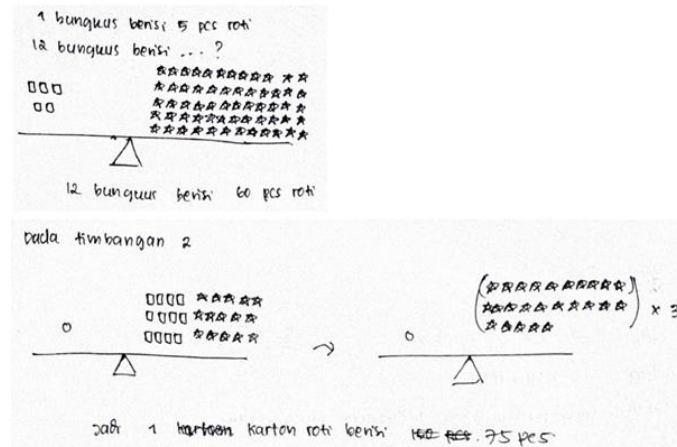 1 bungkus berisi 5 pcs roti
12 bungkus berisi ... ?
12 bungkus berisi 60 pcs roti
pada timbangan 2
× 3
Jadi 1 karton roti berisi 75 pcs